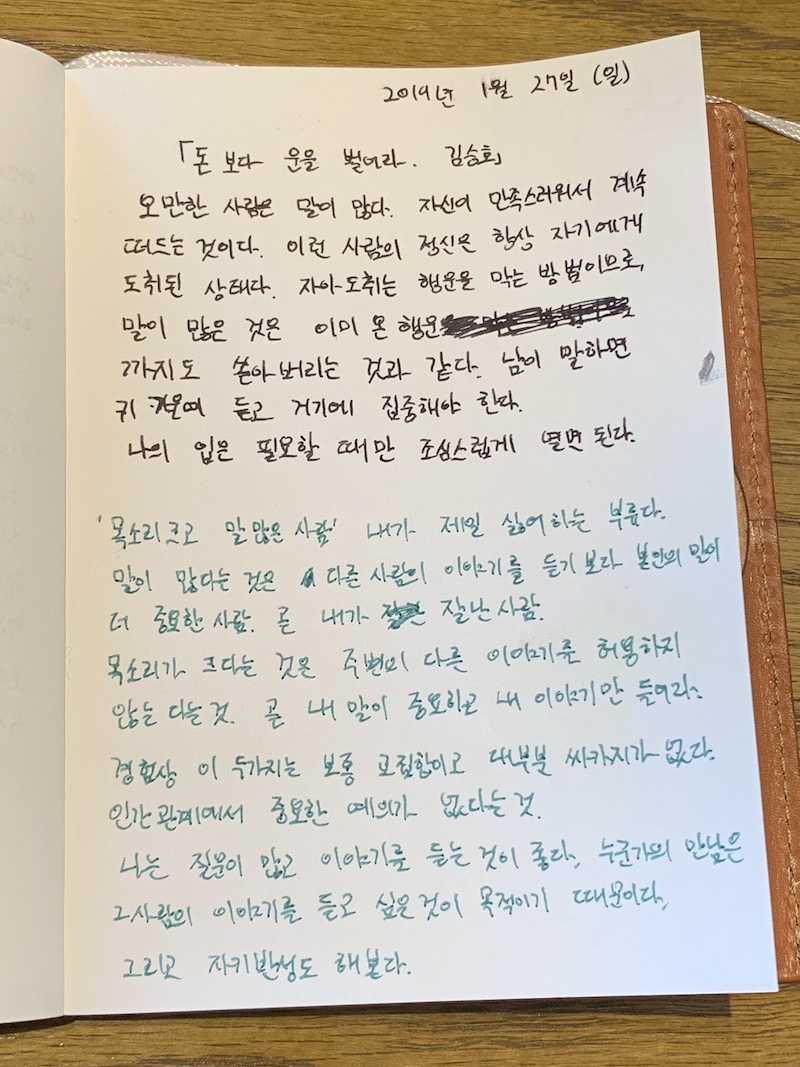 2019년 1월 27일 (일)
「돈 보다 운을 벌어라. 김승호」
오만한 사람은 말이 많다. 자신이 만족스러워서 계속
떠드는 것이다. 이런 사람의 정신은 항상 자기에게
도취된 상태다. 자아도취는 행운을 막는 방벌이므로,
말이 많은 것은 이미 온 행운
까지도 쏟아버리는 것과 같다. 남이 말하면
귀 기울여 듣고 거기에 집중해야 한다.
나의 입은 필요할 때만 조심스럽게 열면 된다.
'목소리 크고 말 많은 사람' 내가 제일 싫어하는 부류다.
말이 많다는 것은 다른 사람의 이야기를 듣기 보다 본인의 말이
더 중요한 사람. 곧 내가 잘난 사람.
목소리가 크다는 것은 주변의 다른 이야기를 허용하지
않는 다는 것. 곧 내 말이 중요하고 내 이야기만 들어라.
경험상 이 두가지는 보통 조합이고 대부분 싸가지가 없다.
인간관계에서 중요한 예의가 없다는 것.
나는 질문이 많고 이야기를 듣는 것이 좋다. 누군가의 만남은
그사람의 이야기를 듣고 싶은 것이 목적이기 때문이다.
그리고 자기반성도 해본다.